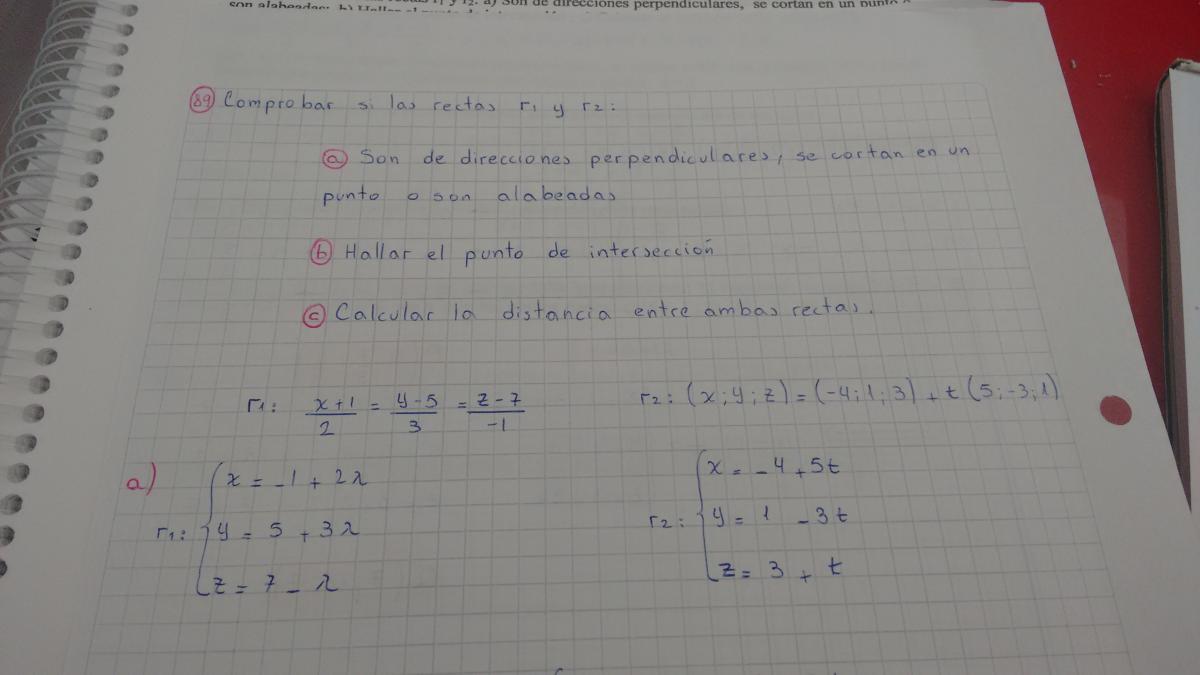 r₁ y r₂. a) Son de direcciones perpendiculares, se cortan en un punto o
son alabeadas; b) Hallar el punto de
89 Comprobar si las rectas r₁ y r₂:
a Son de direcciones perpendiculares, se cortan en un
punto o son alabeadas
b Hallar el punto de intersección
c Calcular la distancia entre ambas rectas.
r₁: (x+1)/2 = (y-5)/3 = (z-7)/-1
r₂: (x;y;z) = (-4;1;3) + t(5;-3;1)
a)
r₁: { x = -1 + 2λ
y = 5 + 3λ
z = 7 - λ
r₂: { x = -4 + 5t
y = 1 - 3t
z = 3 + t